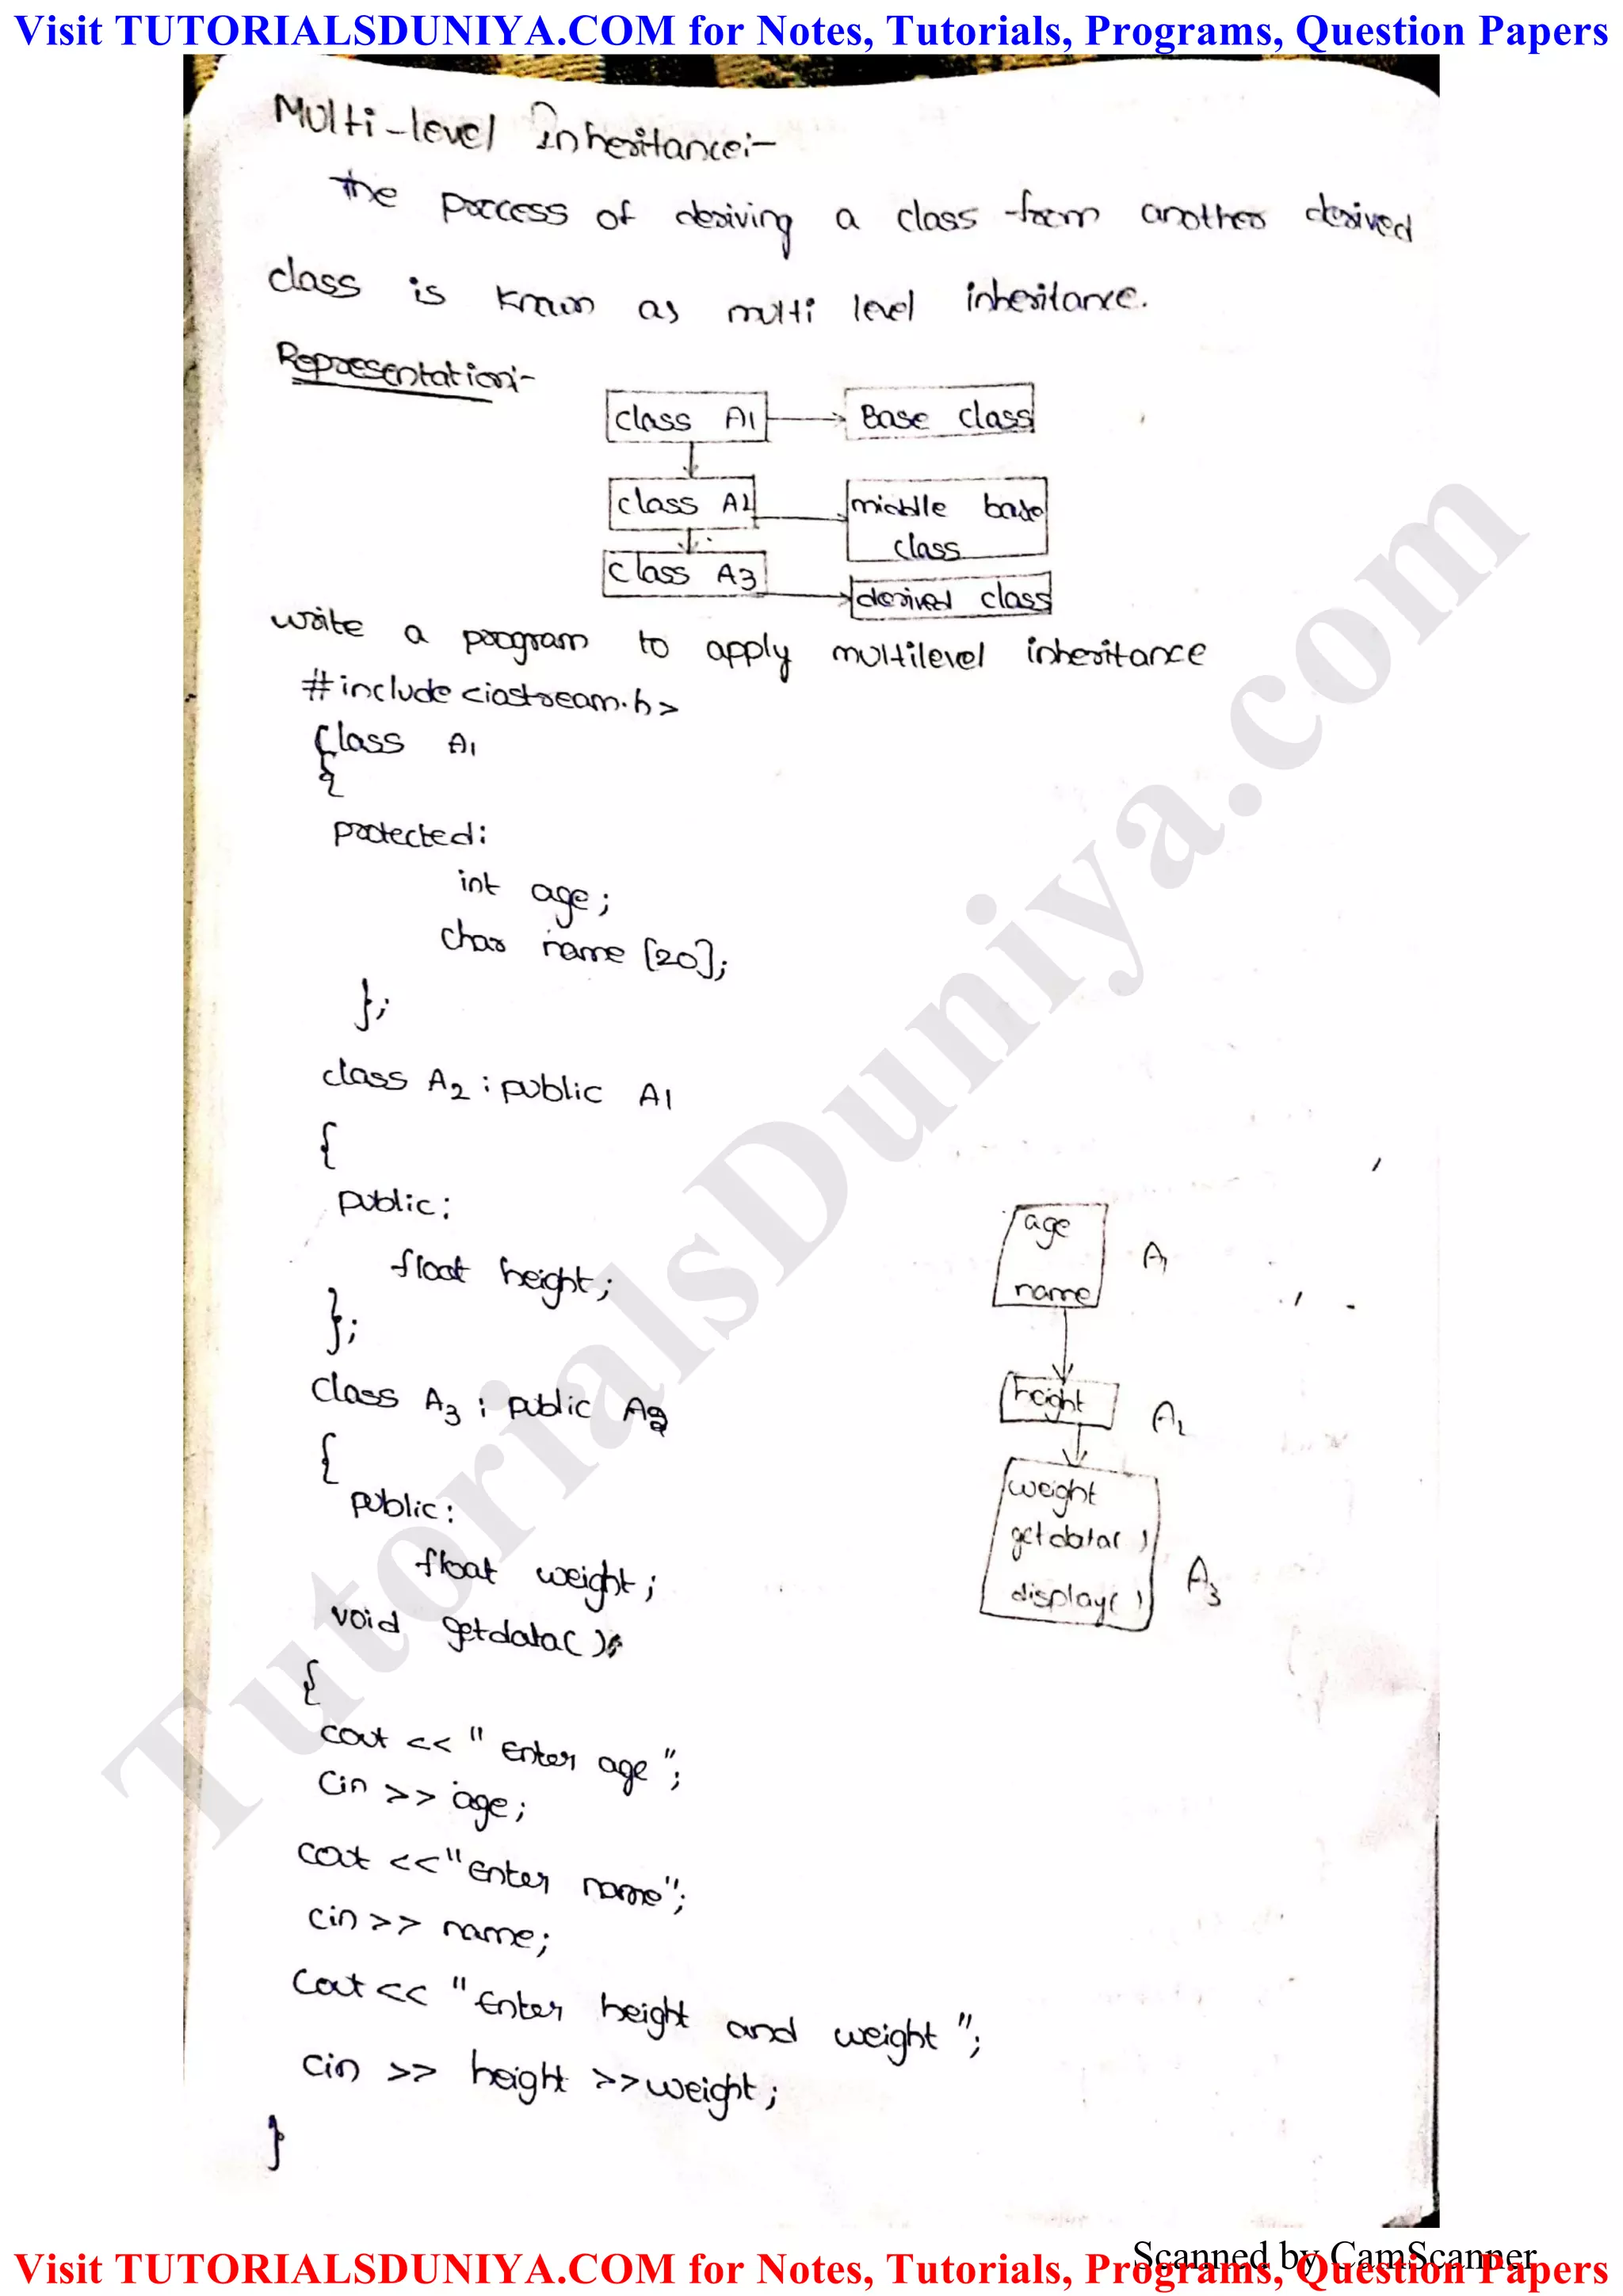 Visit TUTORIALSDUNIYA.COM for Notes, Tutorials, Programs, Question Papers
Multi-level Inheritance:-
The process of deriving a class from another derived
class is known as multi level inheritance.
Representation:-
class A1 Base class
class A2 middle base
class
class A3 derived class
write a program to apply multilevel inheritance
#include <iostream.h>
Class A1
{
protected:
int age;
char name [20];
};
class A2 : public A1
{
public:
float height;
};
class A3 : public A2
{
public:
float weight;
void getdata()
{
cout << "Enter age";
cin >> age;
cout <<"Enter name";
cin >> name;
cout << "Enter height and weight";
cin >> height >> weight;
}
age
name
A1
height
A2
weight
getdata()
display()
A3
TutorialsDuniya.com
Scanned by CamScanner
Visit TUTORIALSDUNIYA.COM for Notes, Tutorials, Programs, Question Papers